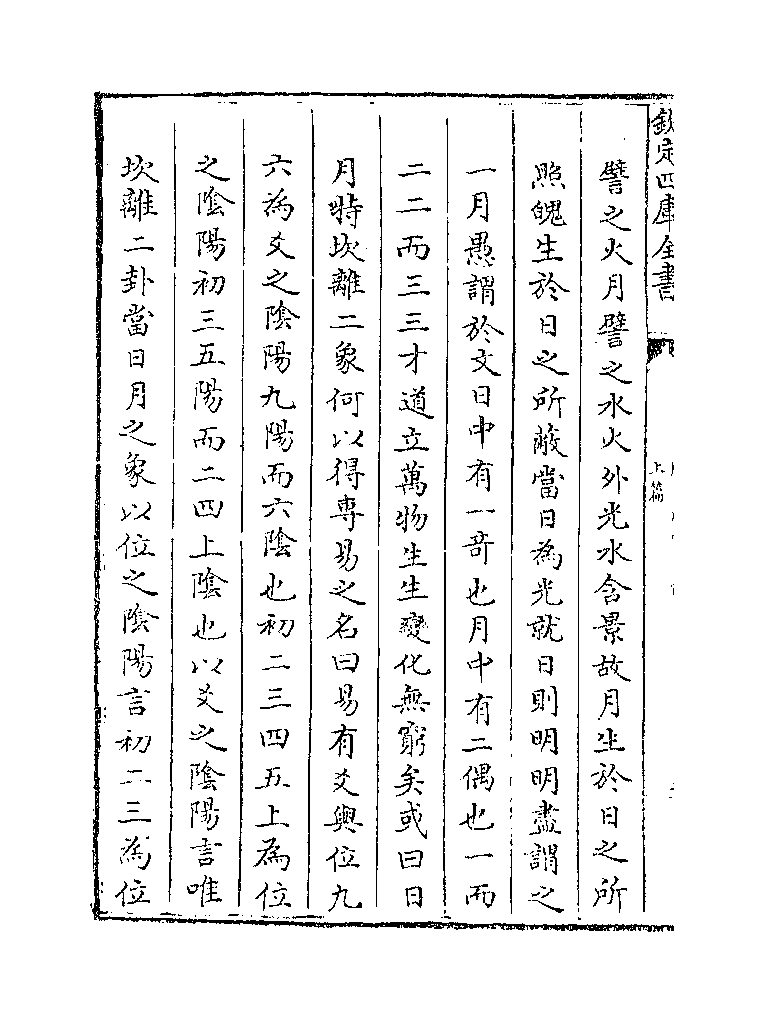 欽定四庫全書
上篇
譬之火月譬之水火外光水含景故月生於日之所
照魄生於日之所蔽當日為光就日則明明盡謂之
一月愚謂於文日中有一奇也月中有二偶也一而
二二而三三才道立萬物生生變化無窮矣或曰日
月特坎離二象何以得專易之名曰易有爻與位九
六為爻之陰陽九陽而六陰也初二三四五上為位
之陰陽初三五陽而二四上陰也以爻之陰陽言唯
坎離二卦當日月之象以位之陰陽言初二三為位